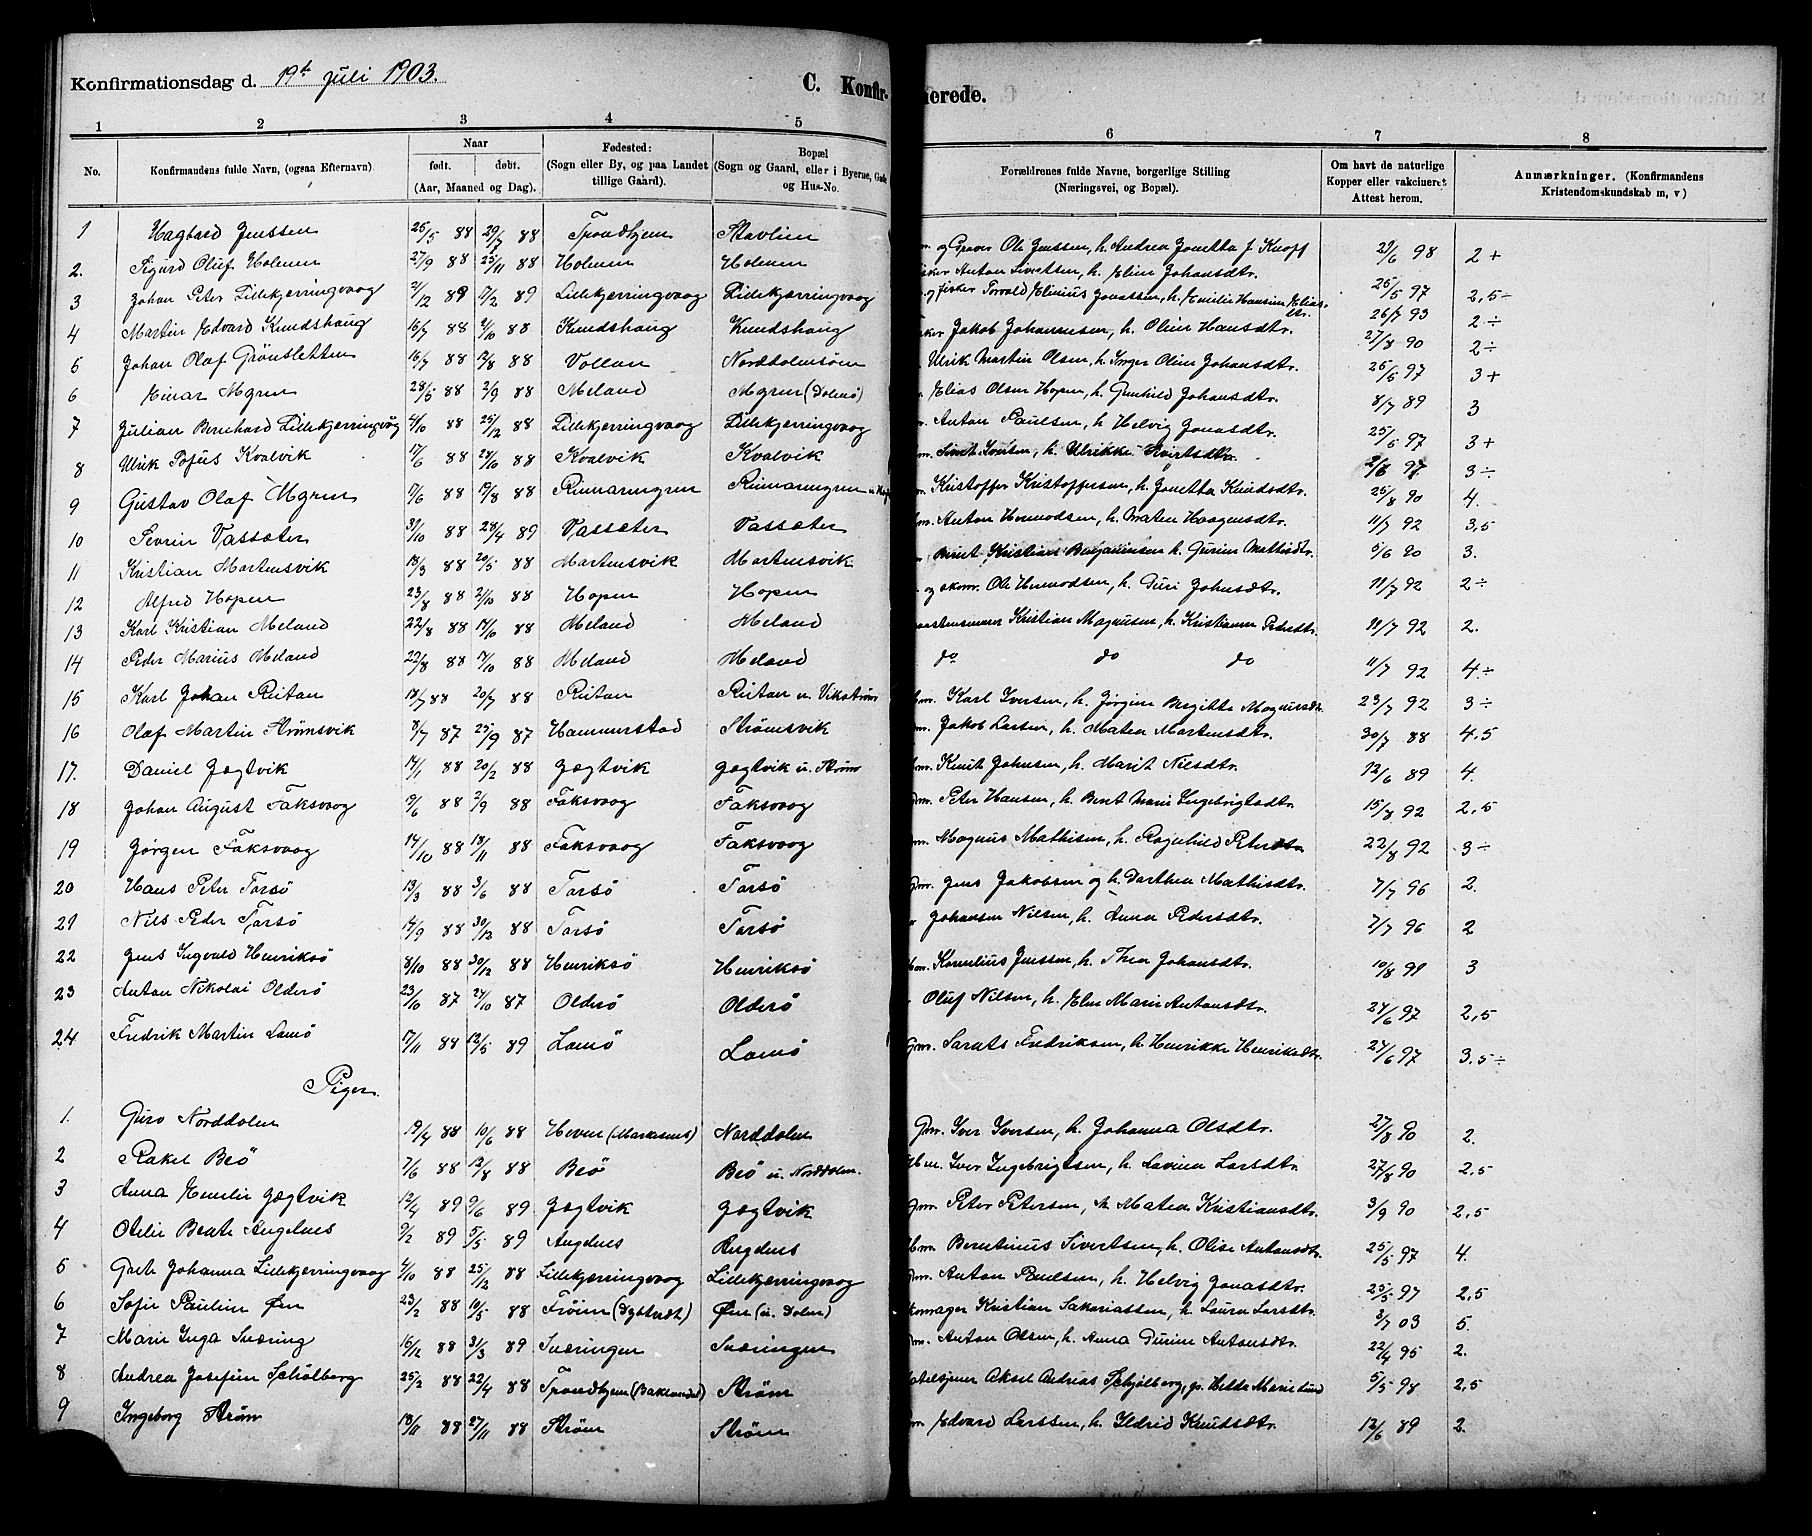 Konfirmationsdag d. 19de Juli 1903.
C. Konfir- merede.
1 2 3 4 5 6 7 8
No. Konfirmandens fulde Navn, (ogsaa Efternavn) Naar født. døbt. (Aar, Maaned og Dag). Fødested: (Sogn eller By, og paa Landet tillige Gaard). Bopæl (Sogn og Gaard, eller i Byerne, Gade og Hus-No. Forældrenes fulde Navne, borgerlige Stilling (Næringsvei, og Bopæl). Om havt de naturlige Kopper eller vakcineret Attest herom. Anmærkninger. (Konfirmandens Kristendomskundskab m, v)
1 Hagbard Jenssen 25/5 88 29/7 88 Trondhjem Stavlien og Graver Ole Jenssen, h. Andrea Jonetta f. Knoff 29/6 98 2 +
2. Sigurd Oluf Holmen 27/9 88 25/11 88 Holmen Holmen Anton Sivertsen, h. Eline Johansdtr. 25/5 97 2,5 ÷
3 Johan Peter Lillekjerringvaag 2/12 89 Lillekjerringvaag Lillekjærringvaag og fisker Torvald Elinius Jonassen, h. Emilie Hansine Eliasdtr. 26/7 93 2 ÷
4 Martin Edvard Knudshaug 16/7 88 2/10 88 Knudshaug Knudshaug Jakob Johannesen, h. Oline Hansdtr. 27/8 90 2 ÷
5 Johan Olaf Grønsletten 16/7 88 12/8 88 Vollan Norddolmsøen Ulrik Martin Olsen, h. Inger Oline Johansdtr. 25/5 97 3 +
6 Einar Myren 28/5 88 2/9 88 Meland Myren (Dolmø) Elias Olsen Hopen, h. Gunhild Johansdtr. 8/7 89 3
7 Julian Bernhard Lillekjerringvåg 4/10 88 25/12 88 Lillekjerringvaag Lillekjerringvaag Anton Paulsen, h. Helvig Jonasdtr. 25/5 97 3 +
8 Ulrik Sofus Kvalvik 17/6 88 28/10 88 Kvalvik Kvalvik Sivert Iversen, h. Ulrikke Sivertsdtr. 2/8 97 3 ÷
9 Gustav Olaf Myren 17/6 88 19/8 88 Rinnarmyren Rinnarmyren Kristoffer Kristoffersen, h. Jonetta Knudsdtr. 25/8 90 4.
10 Sevrin Vassæter 31/10 88 28/4 89 Vassæter Vassæter Anton Hemodsen, h. Maten Haagensdtr. 11/7 92 3,5
11 Kristian Martensvik 18/3 88 20/5 88 Martensvik Martensvik Bernt Kristian Benjaminsen h. Gurine Mathisdtr. 5/6 90 3.
12 Alfred Hopen 23/8 88 2/10 88 Hopen Hopen og skom. Ole Hemodsen, h. Guri Johnsdtr. 11/7 92 2 ÷
13 Karl Kristian Meland 22/8 88 14/10 88 Meland Meland Kristian Magnusen, h. Kristianna Pedersdtr. 11/7 92 2.
14 Peder Marius Meland 22/8 88 14/10 88 Meland Meland do do do 11/7 92 4 ÷
15 Karl Johan Reitan 14/7 88 20/7 88 Reitan Reitan u. Vikstrøm Hm. Karl Iversen, h. Jørgine Birgitte Magnusdtr. 23/7 92 3 ÷
16 Olaf Martin Strømsvik 8/7 87 25/9 87 Hammerstad Strømsvik Jakob Larsen, h. Maten Martensdtr. 30/7 88 4,5
17. Daniel Jægtvik 14/1 88 20/2 88 Jægtvik Jægtvik u. Strøm Knut Johnsen, h. Marit Nilsdtr. 12/6 89 4.
18 Johan August Faksvaag 19/6 88 2/9 88 Faksvaag Faksvaag Gm. Peter Hansen, h. Berit Marie Ingebrigtsdtr. 15/8 92 2,5
19 Jørgen Faksvaag 14/10 88 18/11 88 Faksvaag Faksvaag Magnus Mathisen, h. Ragnhild Petersdtr. 22/8 92 3 ÷
20 Hans Peter Forsø 13/3 88 3/6 88 Forsø Forsø Gm. Jens Jakobsen og h. Darthea Mathisdtr. 7/7 96 2.
21 Nils Peder Forsø 14/9 88 30/12 88 Forsø Forsø Johansen Nilsen, h. Anna Pedersdtr. 7/7 96 2
22 Jens Ingvald Henriksø 8/10 88 30/12 88 Henriksø Henriksø Hm. Kornelius Jenssen, h. Thea Johansdtr. 10/8 91 3
23 Anton Nikolai Oldersø 23/10 87 27/10 87 Oldersø Oldersø Oluf Nilsen, h. Elen Marie Antonsdtr. 24/6 97 2,5
24 Fredrik Martin Lamø 17/11 88 12/5 89 Lamø Lamø Gm. Sarats Fredriksen, h. Henrikke Henriksdtr. 24/6 97 3,5 ÷
Piger.
1. Guro Norddolm 19/4 88 10/6 88 Heven (Markesnes) Norddolm Gm. Iver Iversen, h. Johanna Olsdtr. 27/8 90 2.
2 Rakel Beø 7/6 88 12/8 88 Beø Beø u. Norddolm. Hm. Iver Ingebrigtsen, h. Lavina Larsdtr. 27/8 90 2,5
3 Anna Emelie Jægtvik 12/4 89 9/6 89 Jægtvik Jægtvik Gm. Peter Petersen, h. Maten Kristiansdtr. 3/9 90 2,5
4 Otelie Beate Angelnes 9/2 89 5/5 89 Angelnes Angelnes Hm. Berntinus Sivertsen, h. Olise Antonsdtr. 25/5 97 4.
5 Grete Johanna Lillekjerringvaag 4/10 88 25/12 88 Lillekjerringvaag Lillekjerringvaag Gm. Anton Paulsen, h. Helvig Jonasdtr. 25/5 97 2,5
6 Sofie Pauline Øien 23/2 88 10/5 88 Frøien (Dyrvedt) Øien (u. Dolm) Skomager Kristian Sakariassen, h. Laura Larsdtr. 3/7 03 5.
7 Marie Inga Sværing 16/12 88 31/3 89 Sværingen Sværingen Gm. Anton Olsen, h. Anna Gurine Antonsdtr. 22/4 95 2.
8 Andrea Josefine Schølberg 25/2 88 22/4 88 Trondhjem (Baklandet) Strøm Aksel Andreas Schjølberg, Hilda Marie Lund 5/5 98 2,5
9 Ingeborg Strøm 13/11 88 27/11 88 Strøm Strøm Edvard Larssen, h. Ildrid Knudsdtr. 12/6 89 2.